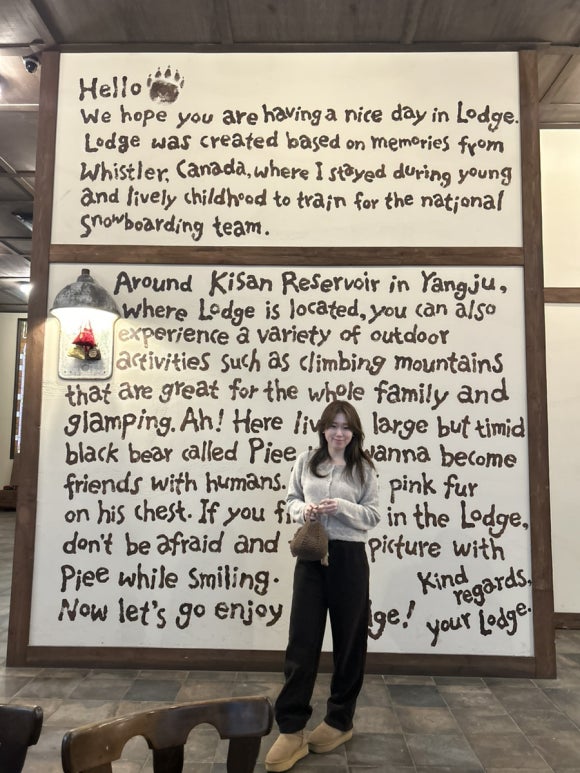 Hello
We hope you are having a nice day in Lodge.
Lodge was created based on memories from
Whistler, Canada, where I stayed during young
and lively childhood to train for the national
snowboarding team.
Around Kisan Reservoir in Yangju,
where Lodge is located, you can also
experience a variety of outdoor
activities such as climbing mountains
that are great for the whole family and
glamping. Ah! Here large but timid
black bear called Piee wanna become
friends with humans. pink fur
on his chest. If you in the Lodge,
don't be afraid and picture with
Piee while smiling.
Now let's go enjoy
Kind regards,
your Lodge.